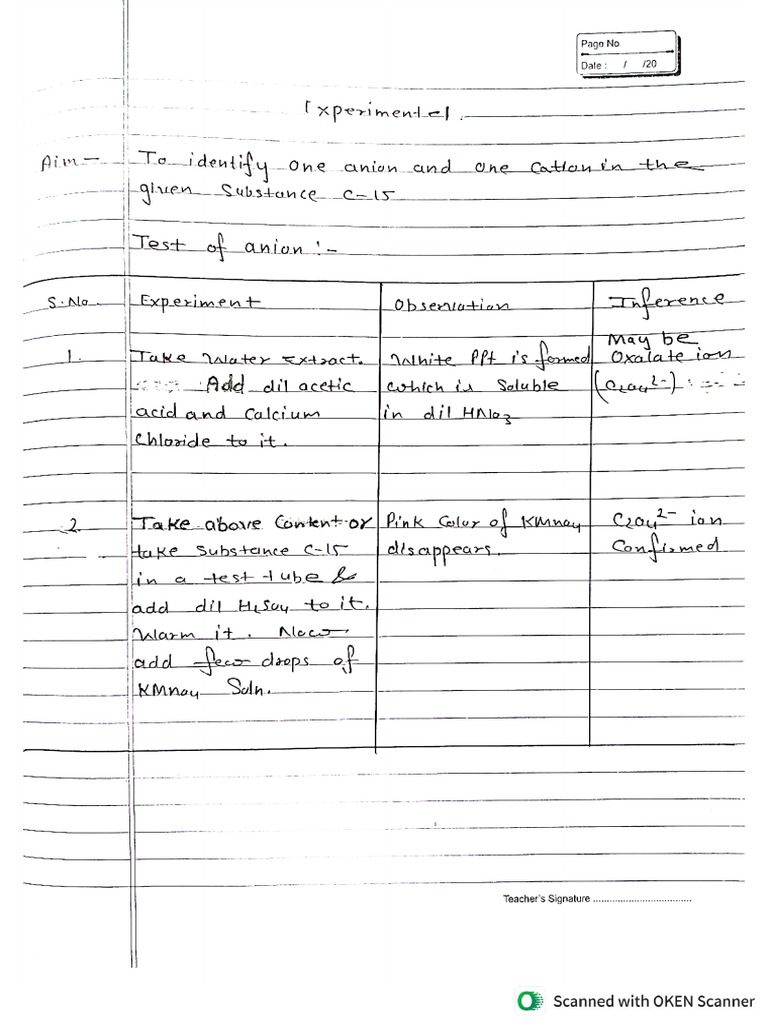 Page No.
Date : / /20
Experiment
Aim - To identify one anion and one cation in the
given Substance C-15
Test of anion :-
S.No. Experiment Observation Inference
1. Take Water Extract.
Add dil acetic
acid and Calcium
Chloride to it.
White PPt is formed
which is Soluble
in dil HNO3
May be
Oxalate ion
(C2O4 2-)
2 Take above Content or
take Substance C-15
in a test tube &
add dil H2SO4 to it.
Warm it. Now
add few drops of
KMnO4 Soln.
Pink Color of KMnO4
disappears.
C2O4 2- ion
Confirmed
Teacher's Signature ..................................
Scanned with OKEN Scanner